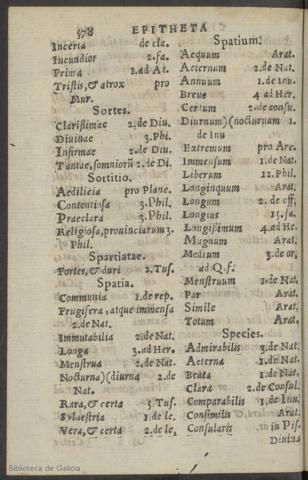 578 EPITHETA
Incerta de cla.
Iucundior 2.fa.
Prima 1.ad At.
Tristis, & atrox pro
Mur.
Sortes.
Clarissimae 2.de Diu.
Diuinae 3.Phil.
Infirmae 2.de Diu.
Tantae, somniorū 2.de Di.
Sortitio.
Aedilicia pro Planc.
Contentiosa 3.Phil.
Praeclara 3.Phil.
Religiosa, prouinciarum 3.
Phil.
Spartiatae.
Fortes, & duri 2.Tus.
Spatia.
Communia 1.de rep.
Frugifera, atque immensa
2.de Nat.
Immutabilia 2.de Nat.
Longa 3.ad Her.
Menstrua 2.de Nat.
Nocturna)(diurna 2.de
Nat.
Rara, & certa 5.Tus.
Syluestria 1.de le.
Vera, & certa 2.de le,
Spatium.
Aequum Arat.
Aeternum 2.de Nat.
Annuum 1.de Inu.
Breue 4.ad Her.
Certum 2.de consu.
Diurnum)(nocturnum 1.
de Inu
Extremum pro Arc.
Immensum 1.de Nat.
Liberum 12.Phil.
Longinquum Arat.
Longum 2. de off.
Longius 15.fa.
Longissimum 4.ad He.
Magnum Arat.
Medium 3.de or.
ad Q.f.
Menstruum 1.de Nat.
Par Arat.
Simile Arat.
Totum Arat.
Species.
Admirabilis 3.de Nat.
Aeterna 1.de Nat.
Beata 1.de Nat.
Clara 2.de Consul.
Comparabilis 1.de Inu.
Consimilis Arat.
Consularis in Pis.
Diuina Or.
Biblioteca de Galicia